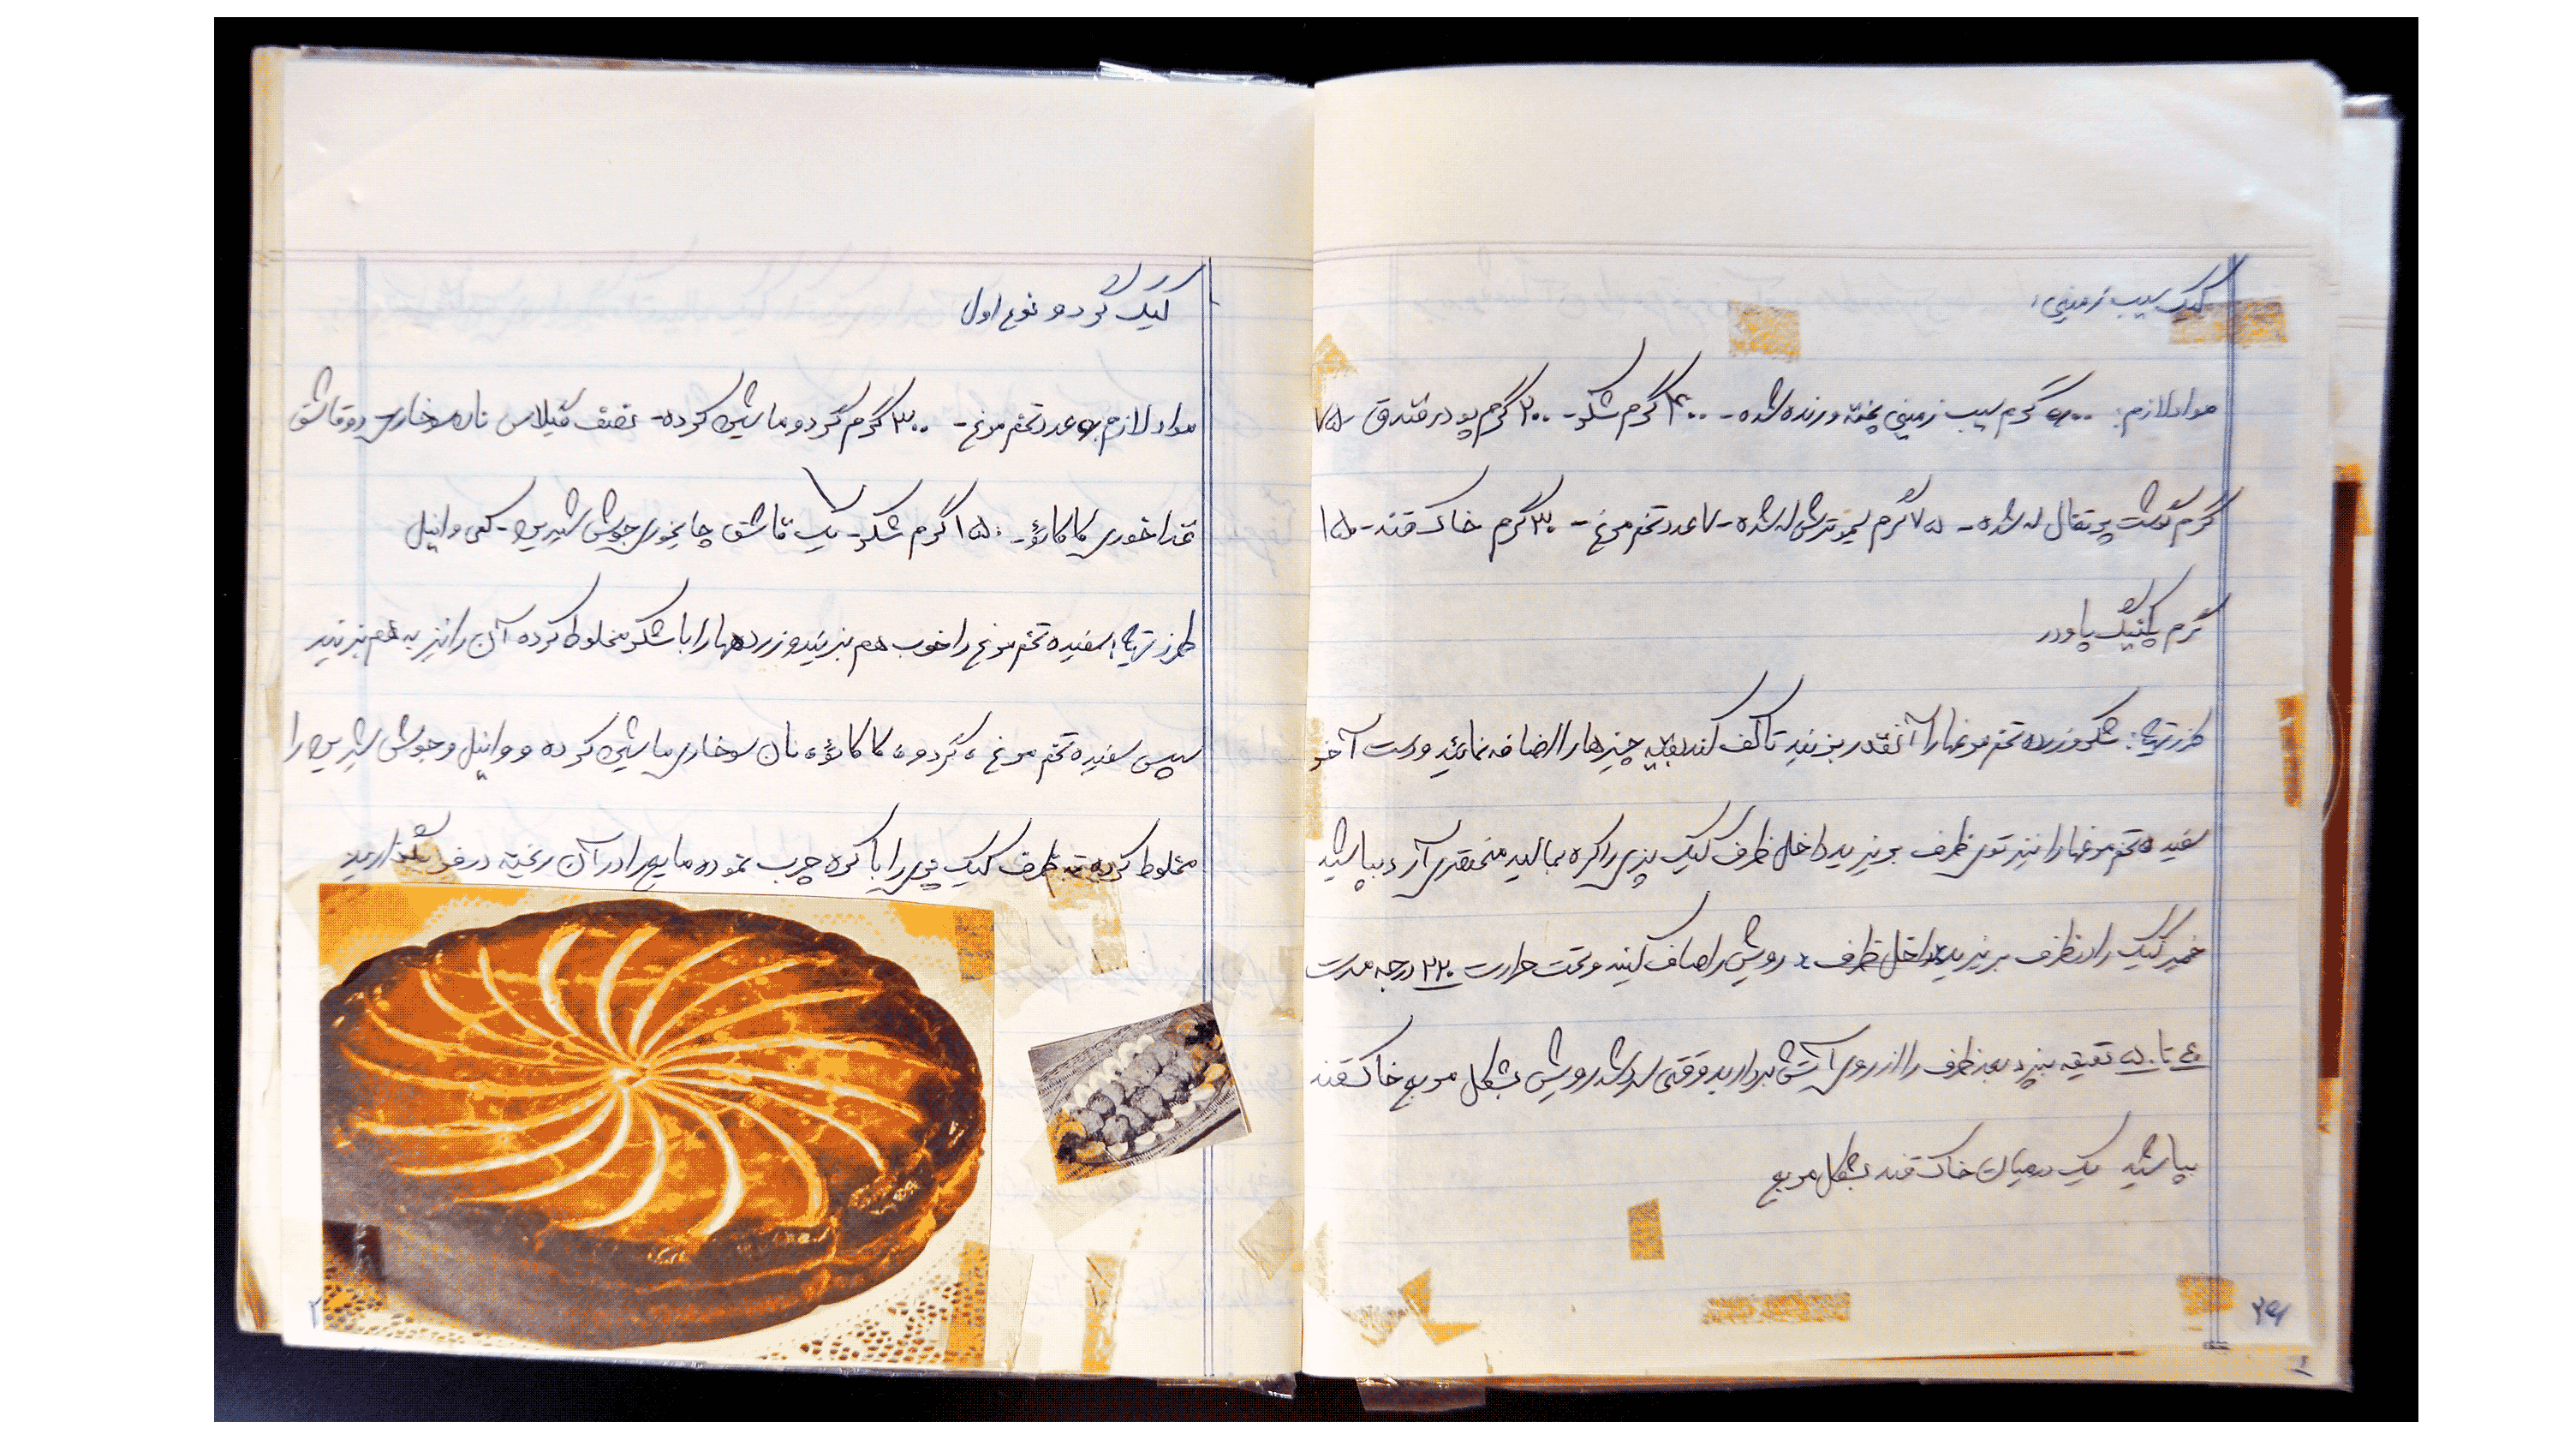 کیک سیب زمینی:
مواد لازم: ۵۰۰ گرم سیب زمینی پخته و رنده شده - ۴۰۰ گرم شکر - ۲۰۰ گرم پودر فندق ۷۵
گرم گوشت پرتقال له شده - ۷۵ گرم لیمو ترش له شده - ۷ عدد تخم مرغ - ۳۰ گرم خاک قند - ۱۵
گرم بکینگ پاودر
طرز تهیه: شکر و زرده تخم مرغها را آنقدر بزنید تا کف کند بقیه چیزها را اضافه نمائید و دست آخر
سفیده تخم مرغها را نیز توی ظرف بریزید داخل ظرف کیک پزی را کره بمالید مختصری آرد بپاشید
خمیر کیک را در ظرف بریزید داخل ظرف رویش را صاف کنید و تحت حرارت ۲۲۰ درجه مدت
۴۰ تا ۵۰ دقیقه بپزد بعد ظرف را از روی آتش بردارید وقتی سرد شد رویش بشکل مربع خاک قند
بپاشید یک در میان خاک قند بشکل مربع
کیک گردو نوع اول
مواد لازم: عدد تخم مرغ - ۳۰۰ گرم گردو ماشین کرده - نصف گیلاس نان سوخاری دو قاشق
غذا خوری کاکائو - ۱۵۰ گرم شکر - یک قاشق چایخوری جوش شیرین - کمی وانیل
طرز تهیه: سفیده تخم مرغ را خوب هم بزنید و زرده ها را با شکر مخلوط کرده آن را نیز به هم بزنید
سپس سفیده تخم مرغ، گردو، کاکائو، نان سوخاری ماشین کرده و وانیل و جوش شیرین را
مخلوط کرده ته ظرف کیک پزی را با کره چرب نموده مایع را در آن ریخته در فر بگذارید